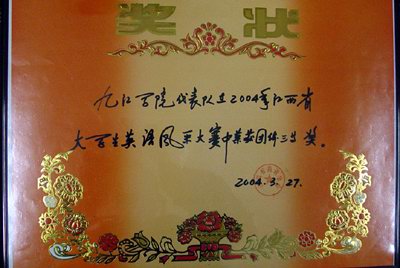 奖状
九江学院代表队在2004年江西省
大学生英语风采大赛中荣获团体三等奖。
2004.3.27.